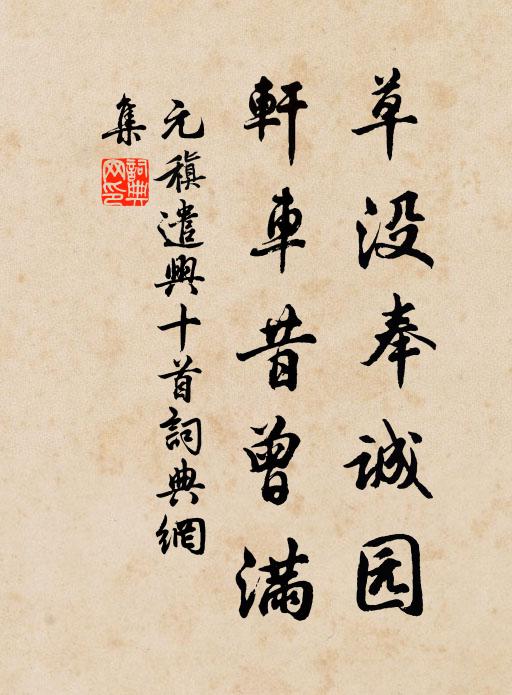 草没奉诚园
軒車昔曾满
元稹遣興十首詞典網
集
詞典網印